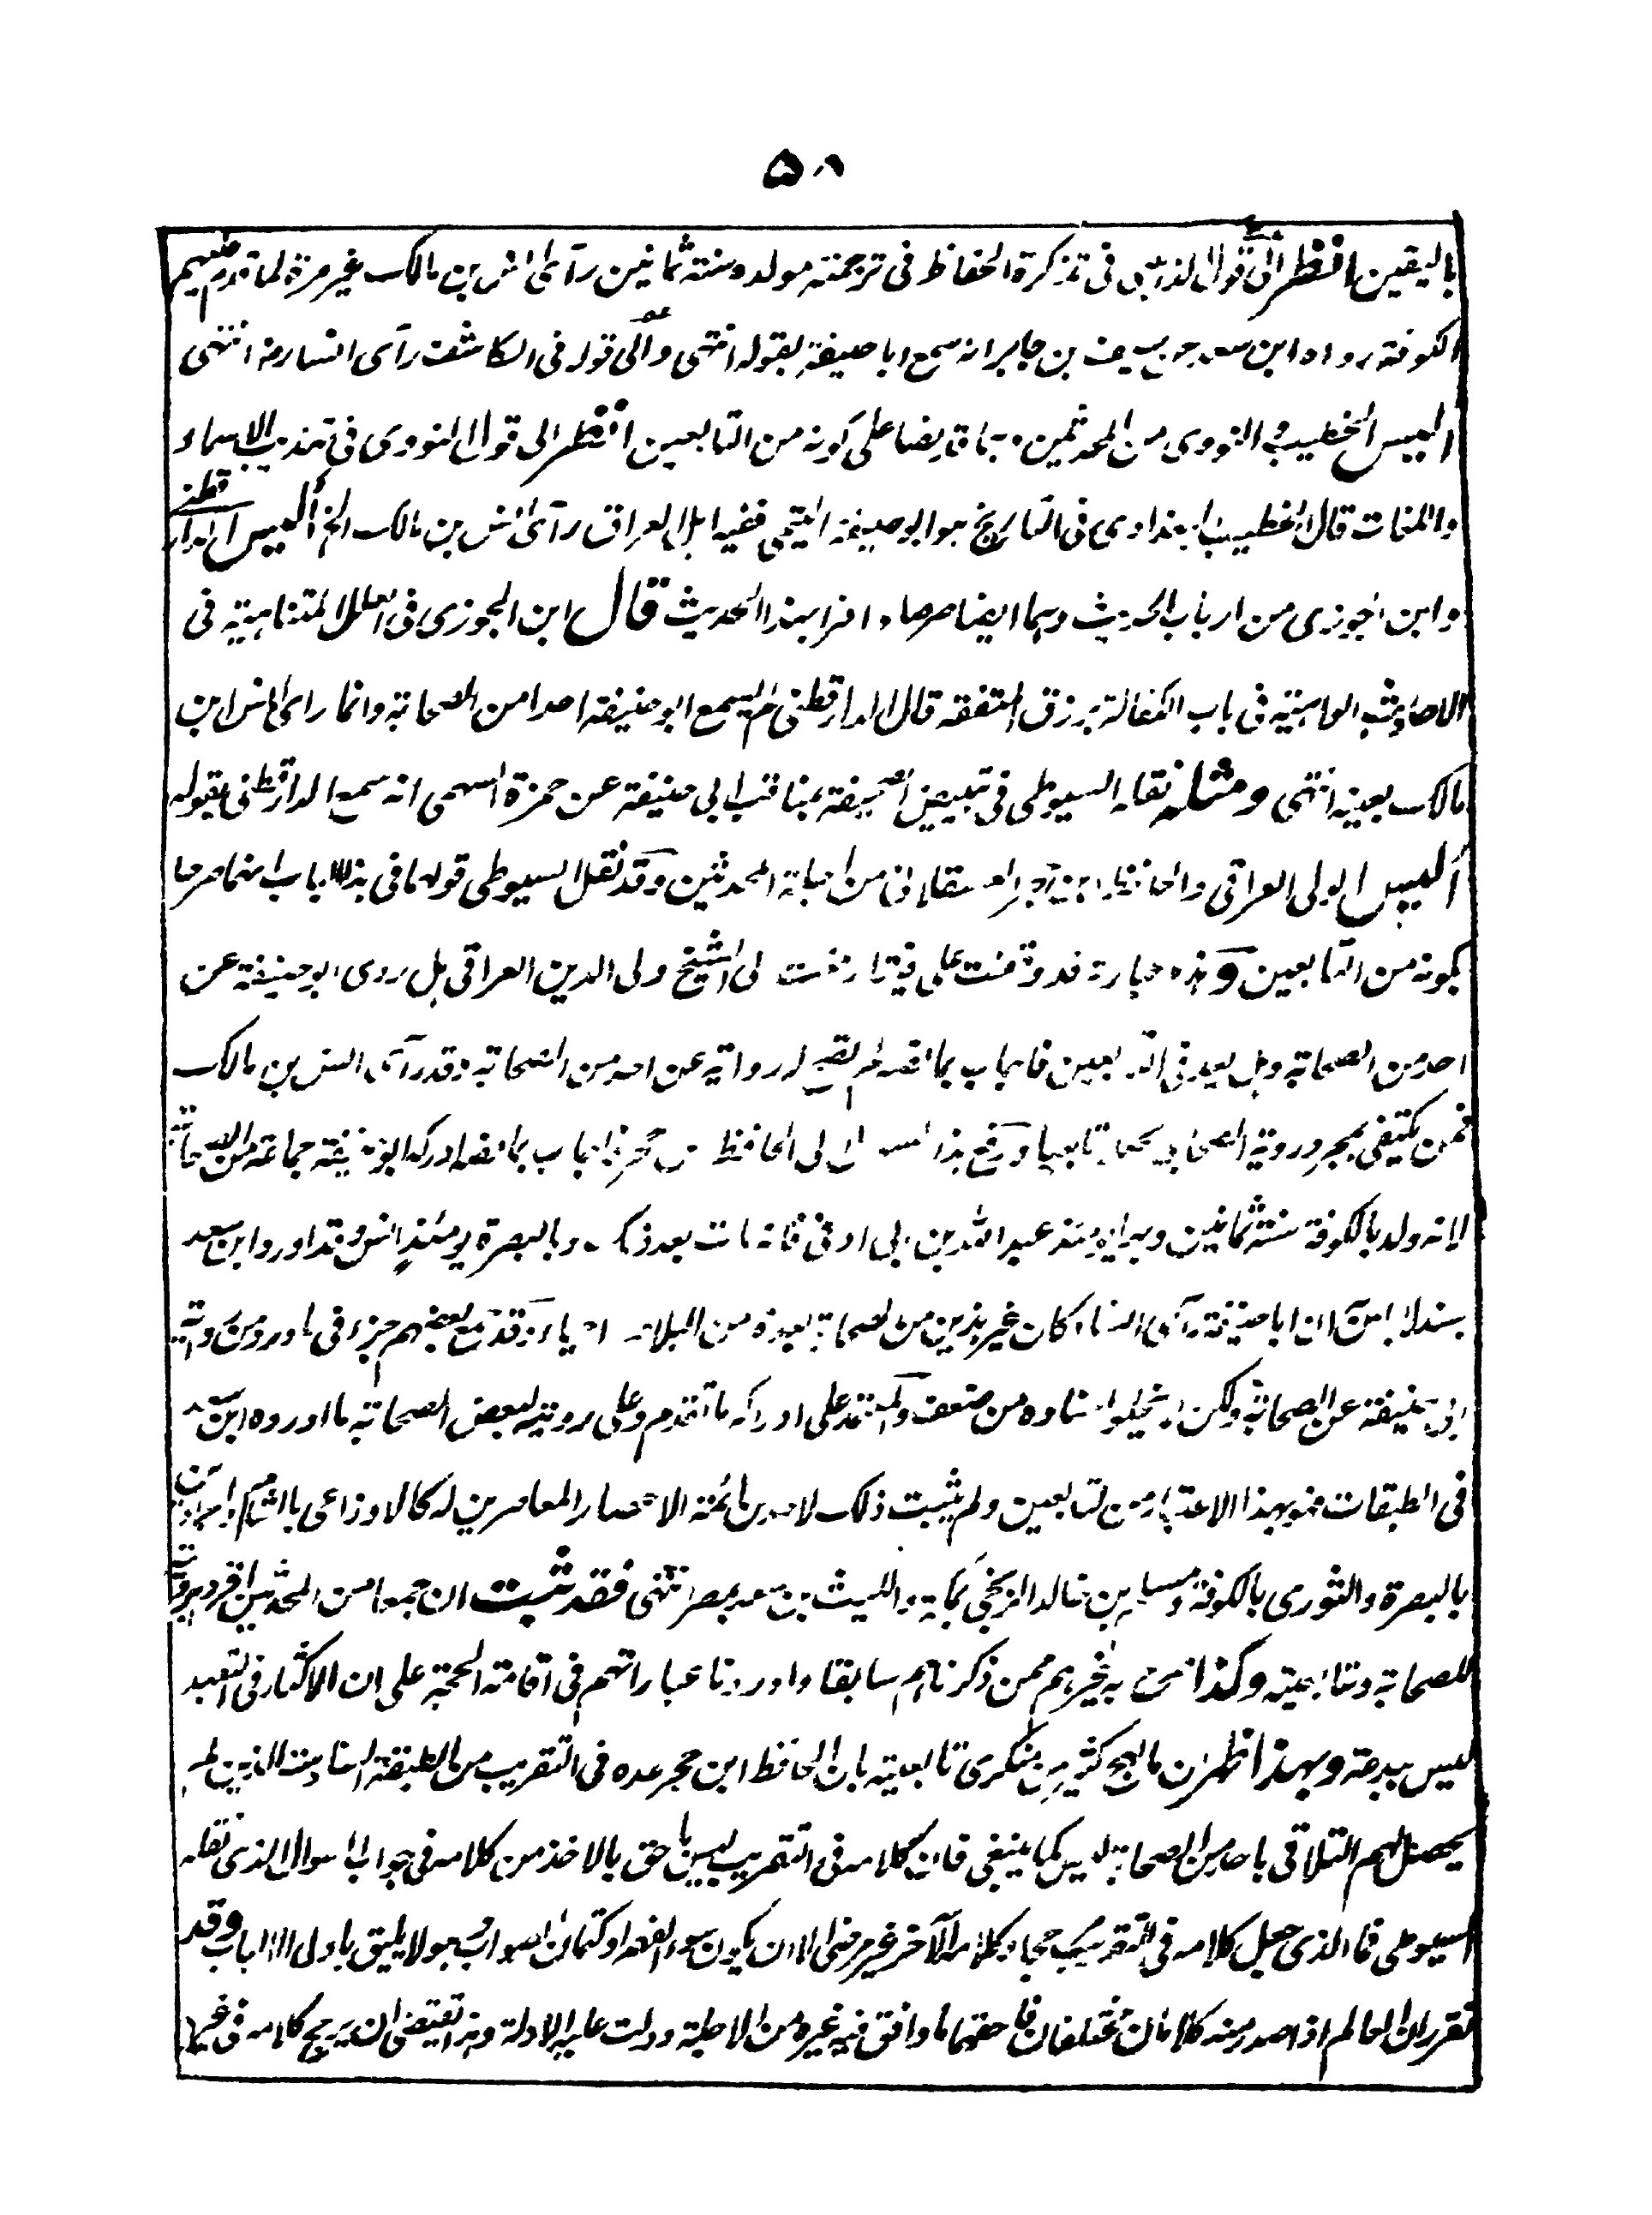 ۵۸
باليقين انظر الى قول الذهبى فى تذكرة الحفاظ فى ترجمته مولده سنة ثمانين رآى انس بن مالك غير مرة لما قدم عليهم
الكوفة رواه ابن سعد عن سيف بن جابر انه سمع ابا حنيفة يقوله انتهى والى قوله فى الكاشف رآى انسا رضه انتهى
اليس الخطيب والنووى من المحدثين وهما قد نصا على كونه من التابعين انظر الى قول النووى فى تهذيب الاسماء
واللغات قال الخطيب البغدادى فى التاريخ هو ابو حنيفة التيمى فقيه اهل العراق رآى انس بن مالك الخ اليس الدارقطنى
وابن الجوزى من ارباب الحديث وهما ايضا صرحا واقرا بهذا الحديث قال ابن الجوزى فى العلل المتناهية فى
الاحاديث الواهية فى باب الكفالة برزق المتفقه قال الدارقطنى لم يسمع ابو حنيفة احدا من الصحابة وانما راى انس ابن
مالك بعينه انتهى ومثله نقله السيوطى فى تبييض الصحيفة بمناقب ابى حنيفة عن حمزة السهمى انه سمع الدارقطنى يقوله
اليس الولى العراقى والحافظ ابن حجر العسقلانى من اجلة المحدثين وقد نقل السيوطى قولهما فى هذا الباب انهما صرحا
بكونه من التابعين وهذه عبارته قد وقفت على فتيا رفعت الى الشيخ ولى الدين العراقى هل روى ابو حنيفة عن
احد من الصحابة وهل يعد فى التابعين فاجاب بما نصه لم يصح له رواية عن احد من الصحابة وقد رآى انس بن مالك
فمن يكتفى بمجرد روية الصحابى يجعله تابعيا ورفع هذا السوال الى الحافظ بن حجر فاجاب بما نصه ادرك ابو حنيفة جماعة من الصحابة
لانه ولد بالكوفة سنة ثمانين وبها يومئذ عبد الله بن ابى اوفى فانه مات بعد ذلك وبالبصرة يومئذ انس وقد اورد ابن سعد
بسند لا باس ان ابا حنيفة رآى انسا وكان غير هذين من الصحابة بعدة من البلاد احياء وقد جمع بعضهم جزء فى ما ورد من رواية
ابى حنيفة عن الصحابة ولكن لا يخلو اسناده من ضعف والمعتمد على ادراكه ما تقدم وعلى رويته لبعض الصحابة ما اورده ابن سعد
فى الطبقات فهو بهذا الاعتبار من التابعين ولم يثبت ذلك لاحد من ائمة الامصار المعاصرين له كالاوزاعى بالشام والحمادين
بالبصرة والثورى بالكوفة ومسلم بن خالد الزنجى بمكة والليث بن سعد بمصر انتهى فقد ثبت ان جمعا من المحدثين اقر برويته
للصحابة وتابعيته وكذا صرح به غيرهم ممن ذكرناهم سابقا واوردنا عباراتهم فى اقامة الحجة على ان الاكثار فى التعبد
ليس ببدعة وبهذا ظهر ان ما لهج كثير من منكرى تابعيته بان الحافظ ابن حجر عده فى التقريب من الطبقة السادسة الذين لم
يحصل لهم التلاقى باحد من الصحابة ليس كما ينبغى فان كلامه فى التقريب ليس باحق بالاخذ من كلامه فى جواب السوال الذى نقله
السيوطى فما الذى جعل كلامه فى التقريب مجاز كلامه الآخر غير مرضى الا ان يكون سوء الفهم او كتمان الصواب وهو لا يليق باولى الالباب وقد
تقرر ان العالم اذا صدر منه كلامان مختلفان فاحقهما ما وافق فيه غيره من الاجلة ودلت عليه الادلة وهذا يقتضى ان يرجح كلامه فى غير